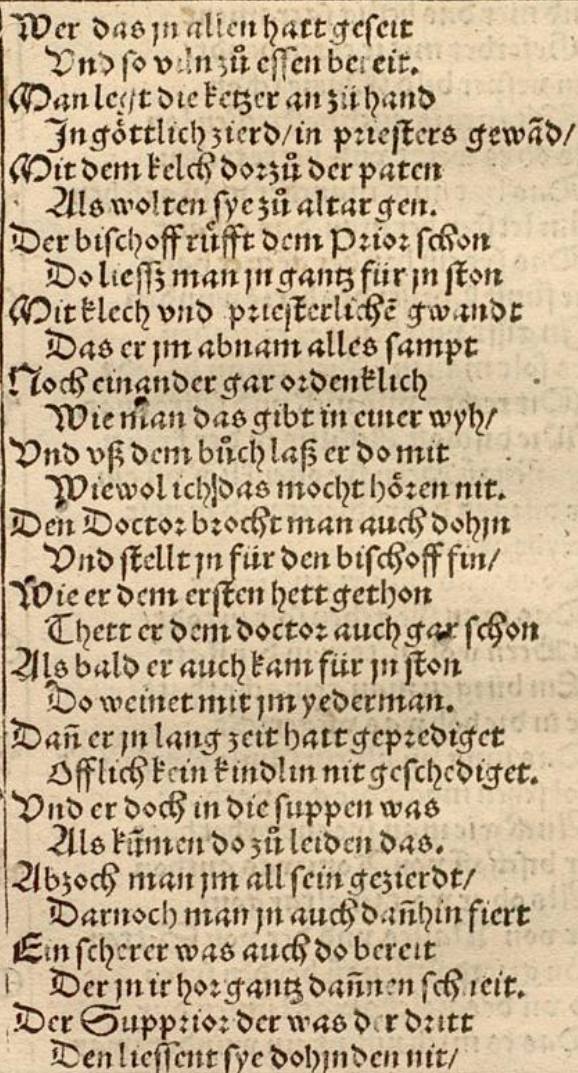 Wer das jn allen hatt geseit
Vnd so vil n zů essen bereit.
Man legt die ketzer an zů hand
In göttlich zierd/ in priesters gewãd/
Mit dem kelch dorzů der paten
Als wolten sye zů altar gen.
Der bischoff růfft dem Prior schon
Do liessz man jn gantz für jn ston
Mit klech vnd priesterlichẽ gwandt
Das er jm abnam alles sampt
Noch einander gar ordenklich
Wie man das gibt in einer wyh/
Vnd vß dem bůch laß er do mit
Wiewol ich das mocht hören nit.
Den Doctor brocht man auch dohjn
Vnd stellt jn für den bischoff fin/
Wie er dem ersten hett gethon
Thett er dem doctor auch gar schon
Als bald er auch kam für jn ston
Do weinet mit jm yederman.
Dañ er jn lang zeit hatt geprediget
Offlich kein kindlin nit geschediget.
Vnd er doch in die suppen was
Als kům̃en do zů leiden das.
Abzoch man jm all sein gezierdt/
Darnoch man jn auch dañhin fiert
Ein scherer was auch do bereit
Der jn ir hor gantz dannen schreit.
Der Supprior der was der dritt
Den liessent sye dohjnden nit/